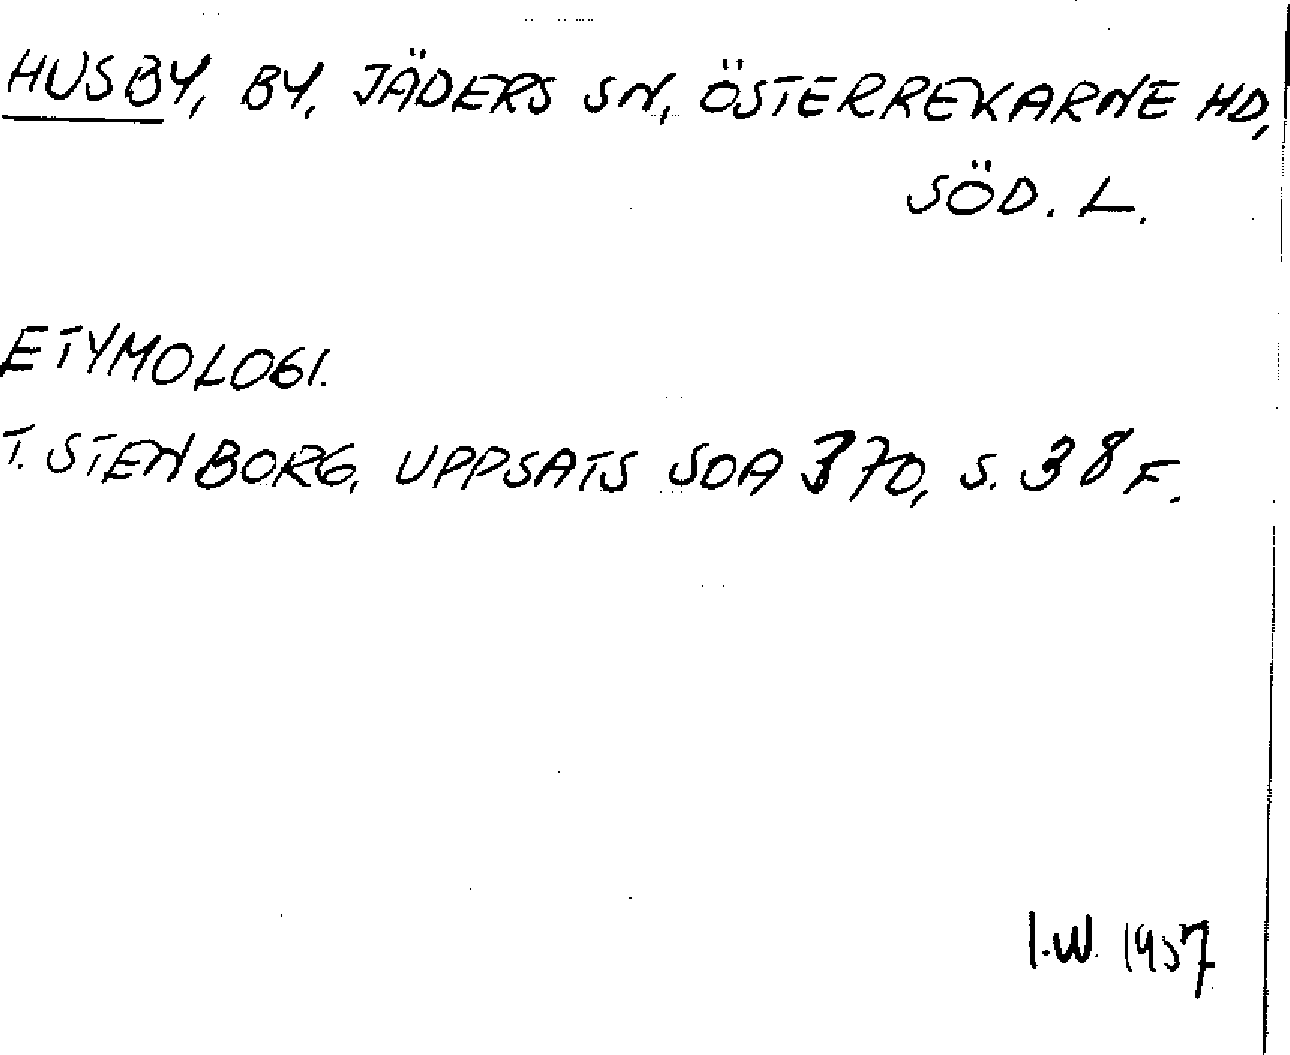 HUSBY, BY, JÄDERS SN, ÖSTERREKARNE HD,
SÖD. L.
ETYMOLOGI.
T. STENBORG, UPPSATS SOA 370, S. 38 F.
I.W. 1957